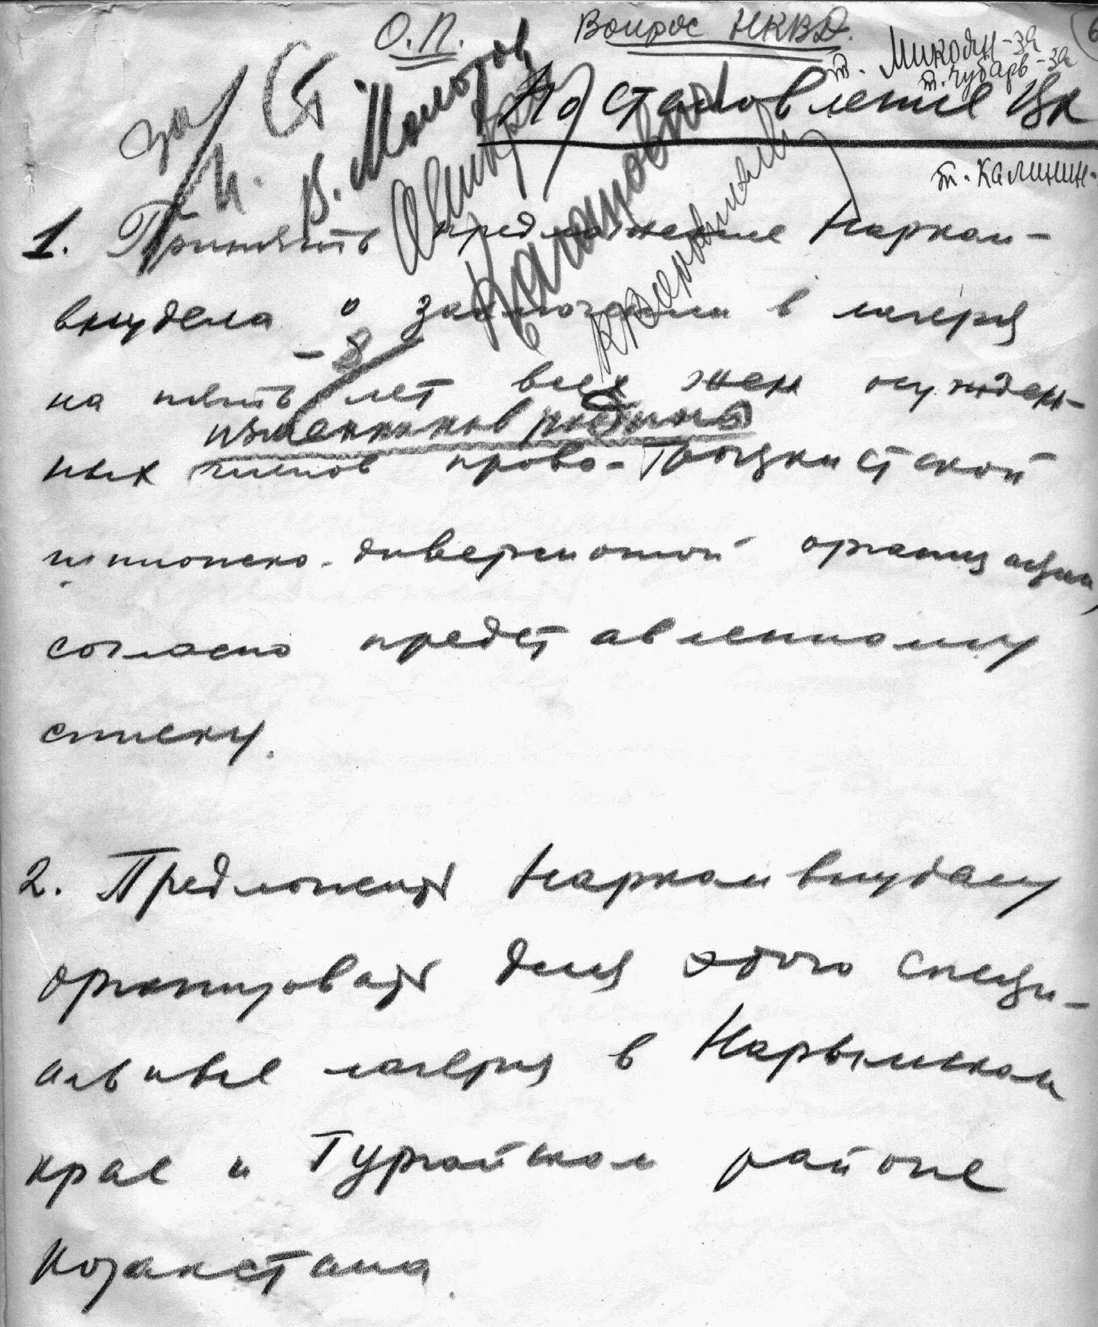 О.П. Вопрос НКВД.
т. Микоян-за
т. Чубарь-за
за И. Ст.
В. Молотов
Л. Каганович
К Ворошилов
Постановление ЦК
т. Калинин-
1. Принять предложение Нарком-
внудела о заключении в лагеря
-8
на пять лет всех жен осужден-
изменников родины
ных членов право-троцкистской
шпионско-диверсионной организации,
согласно представленному
списку.
2. Предложить Наркомвнуделу
организовать для этого специ-
альные лагеря в Нарымском
крае и Тургайском районе
Казакстана